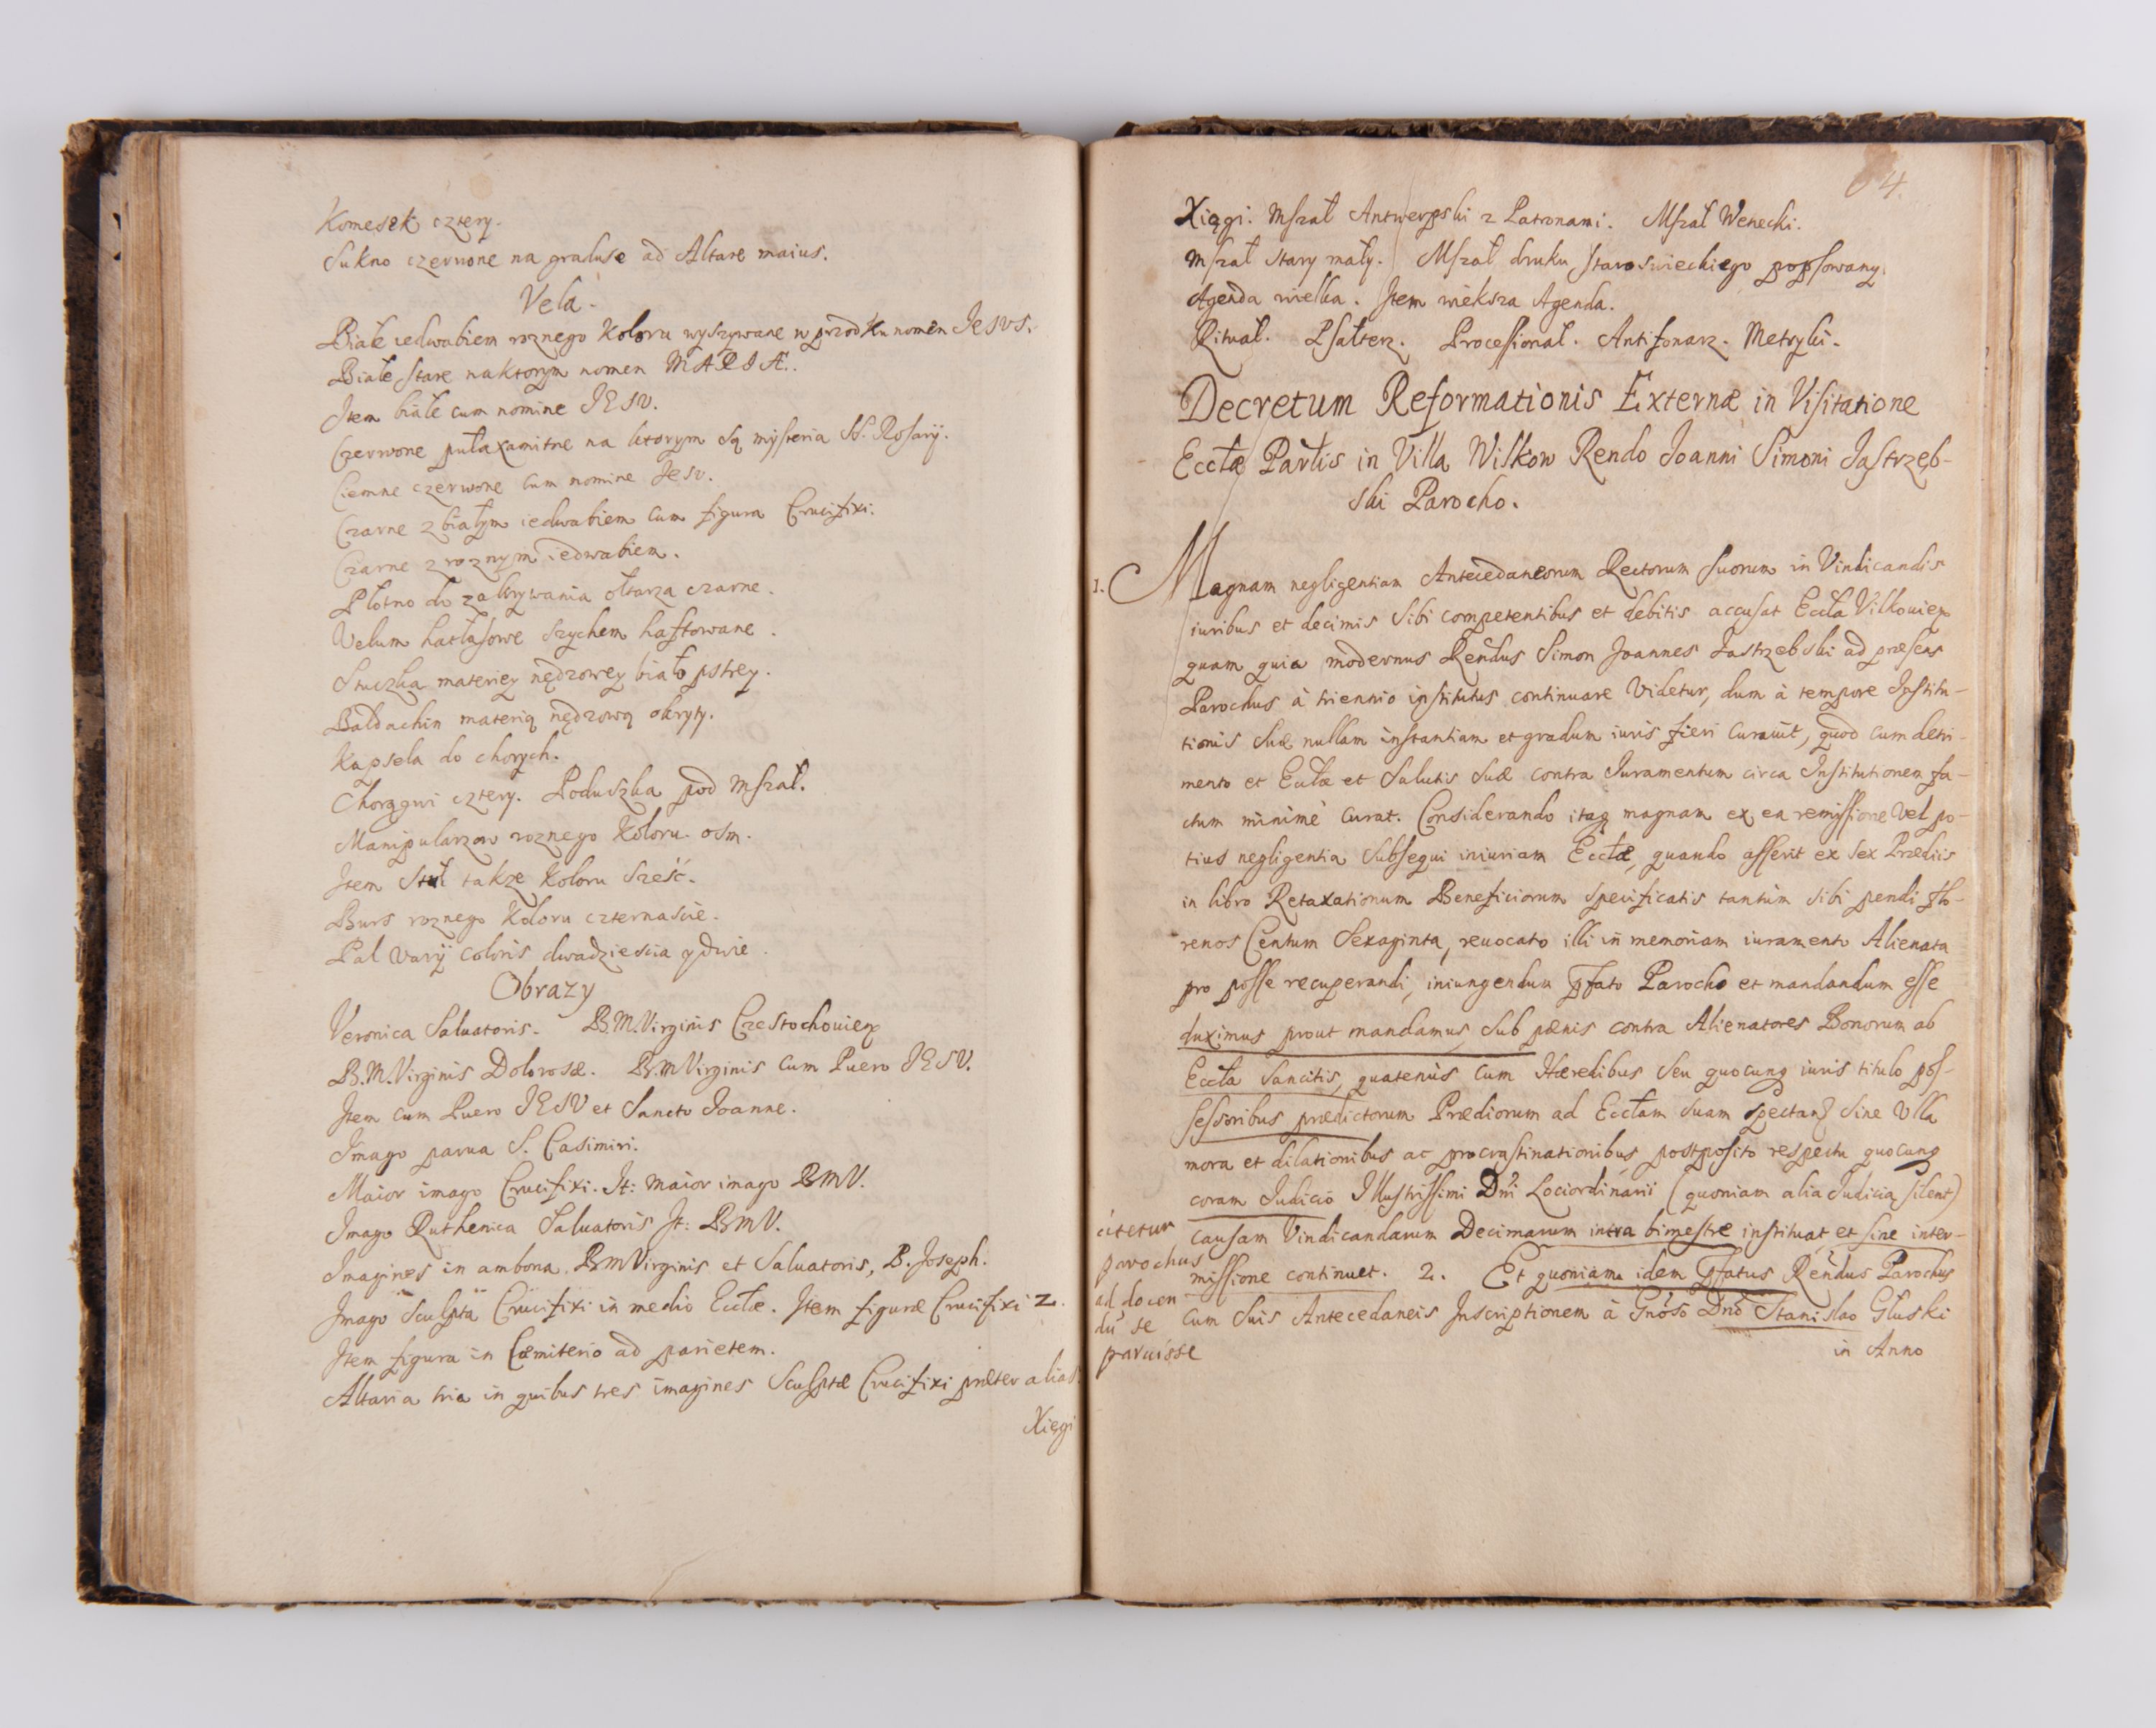 Komesek cztery.
Sukno czerwone na graduse ad Altare maius.
Vela.
Białe iedwabiem roznego koloru wyszywane w przodku nomen IESVS.
Białe stare naktorym nomen MARIA.
Item białe cum nomine IESV.
Czerwone pułaxamitne na ktorym są mysteria SS. Rosarij.
Ciemne czerwone cum nomine Iesv.
Czarne z białym iedwabiem cum figura Crucifixi.
Czarne z roznym iedwabiem.
Płotno do zakrywania ołtarza czarne.
Velum hatłasowe szychem haftowane.
Stuczka materiey nędzowey biało pstrey.
Baldachin materią nędzową okryty.
Kapsela do chorych.
Chorągwi cztery. Poduszka pod Mszał.
Manipularzow roznego koloru. osm.
Item Stuł takze koloru sześć.
Burs roznego koloru czternascie.
Pal varij coloris dwadziescia y dwie.
Obrazy
Veronica Saluatoris. B.M.Virginis Czestochouien
B.M.Virginis Dolorosæ. B.M.Virginis cum Puero IESV.
Item cum Puero IESV et Sancto Joanne.
Imago parua S. Casimiri.
Maior imago Crucifixi. It: maior imago BMV.
Imago Ruthenica Saluatoris It: BMV.
Imagines in ambona BMVirginis et Saluatoris, B. Joseph.
Imago Sculpta Crucifixi in medio Eccłæ. Item figuræ Crucifixi 2.
Item figura in Cœmiterio ad parietem.
Altaria tria in quibus tres imagines Sculptæ Crucifixi præter alias.
Xięgi
84
Xiągi. Mszał Antwerpski z Patronami. Mszał Wenecki.
Mszał stary mały. Mszał druku staroswieckiego popsowany.
Agenda wielka. Item wieksza Agenda.
Rituał. Psałterz. Processionał. Antifonarz. Metryki.
Decretum Reformationis Externæ in Visitatione
Eccłæ Parłis in Villa Wilkow Rendo Joanni Simoni Jastrzęb-
ski Parocho.
1. Magnam negligentiam Antecedaneorum Rectorum suorum in Vindicandis
iuribus et decimis sibi competentibus et debitis accusat Eccła Vilkouien
quam quia modernus Rendus Simon Joannes Jastrzebski ad præsens
Parochus à triennio institutus continuare videtur, dum à tempore Institu-
tionis suæ nullam instantiam et gradum iuris fieri curauit, quod cum detri-
mento et Eccłæ et Salutis suæ contra Iuramentum circa Institutionem fa-
ctum minimè curat. Considerando itaq magnam ex ea remissione vel po-
tius negligentia subsequi iniuriam Eccłæ, quando asserit ex sex Prædiis
in libro Retaxationum Beneficiorum specificatis tantùm sibi pendi flo-
renos Centum Sexaginta, reuocato illi in memoriam iuramento Alienata
pro posse recuperandi, iniungendum pfato Parocho et mandandum esse
duximus prout mandamus sub pœnis contra Alienatores Bonorum ab
Eccła sancitis, quatenùs cum Hæredibus seu quocunq iuris titulo pos-
sessoribus prædictorum Prædiorum ad Eccłam suam spectan sine vlla
mora et dilationibus ac procrastinationibus postposito respectu quocunq
coram Iudicio Illustrissimi Dni Lociordinarii (quoniam alia Iudicia silent)
causam Vindicandarum Decimarum intra bimestre instituat et sine inter-
missione continuet. 2. Et quoniam idem Pfatus Rendus Parochus
cum suis Antecedaneis Inscriptionem à Gnoso Dno Stanislao Głuski
in Anno
citetur
parochus
ad docen
dũ se
paruisse